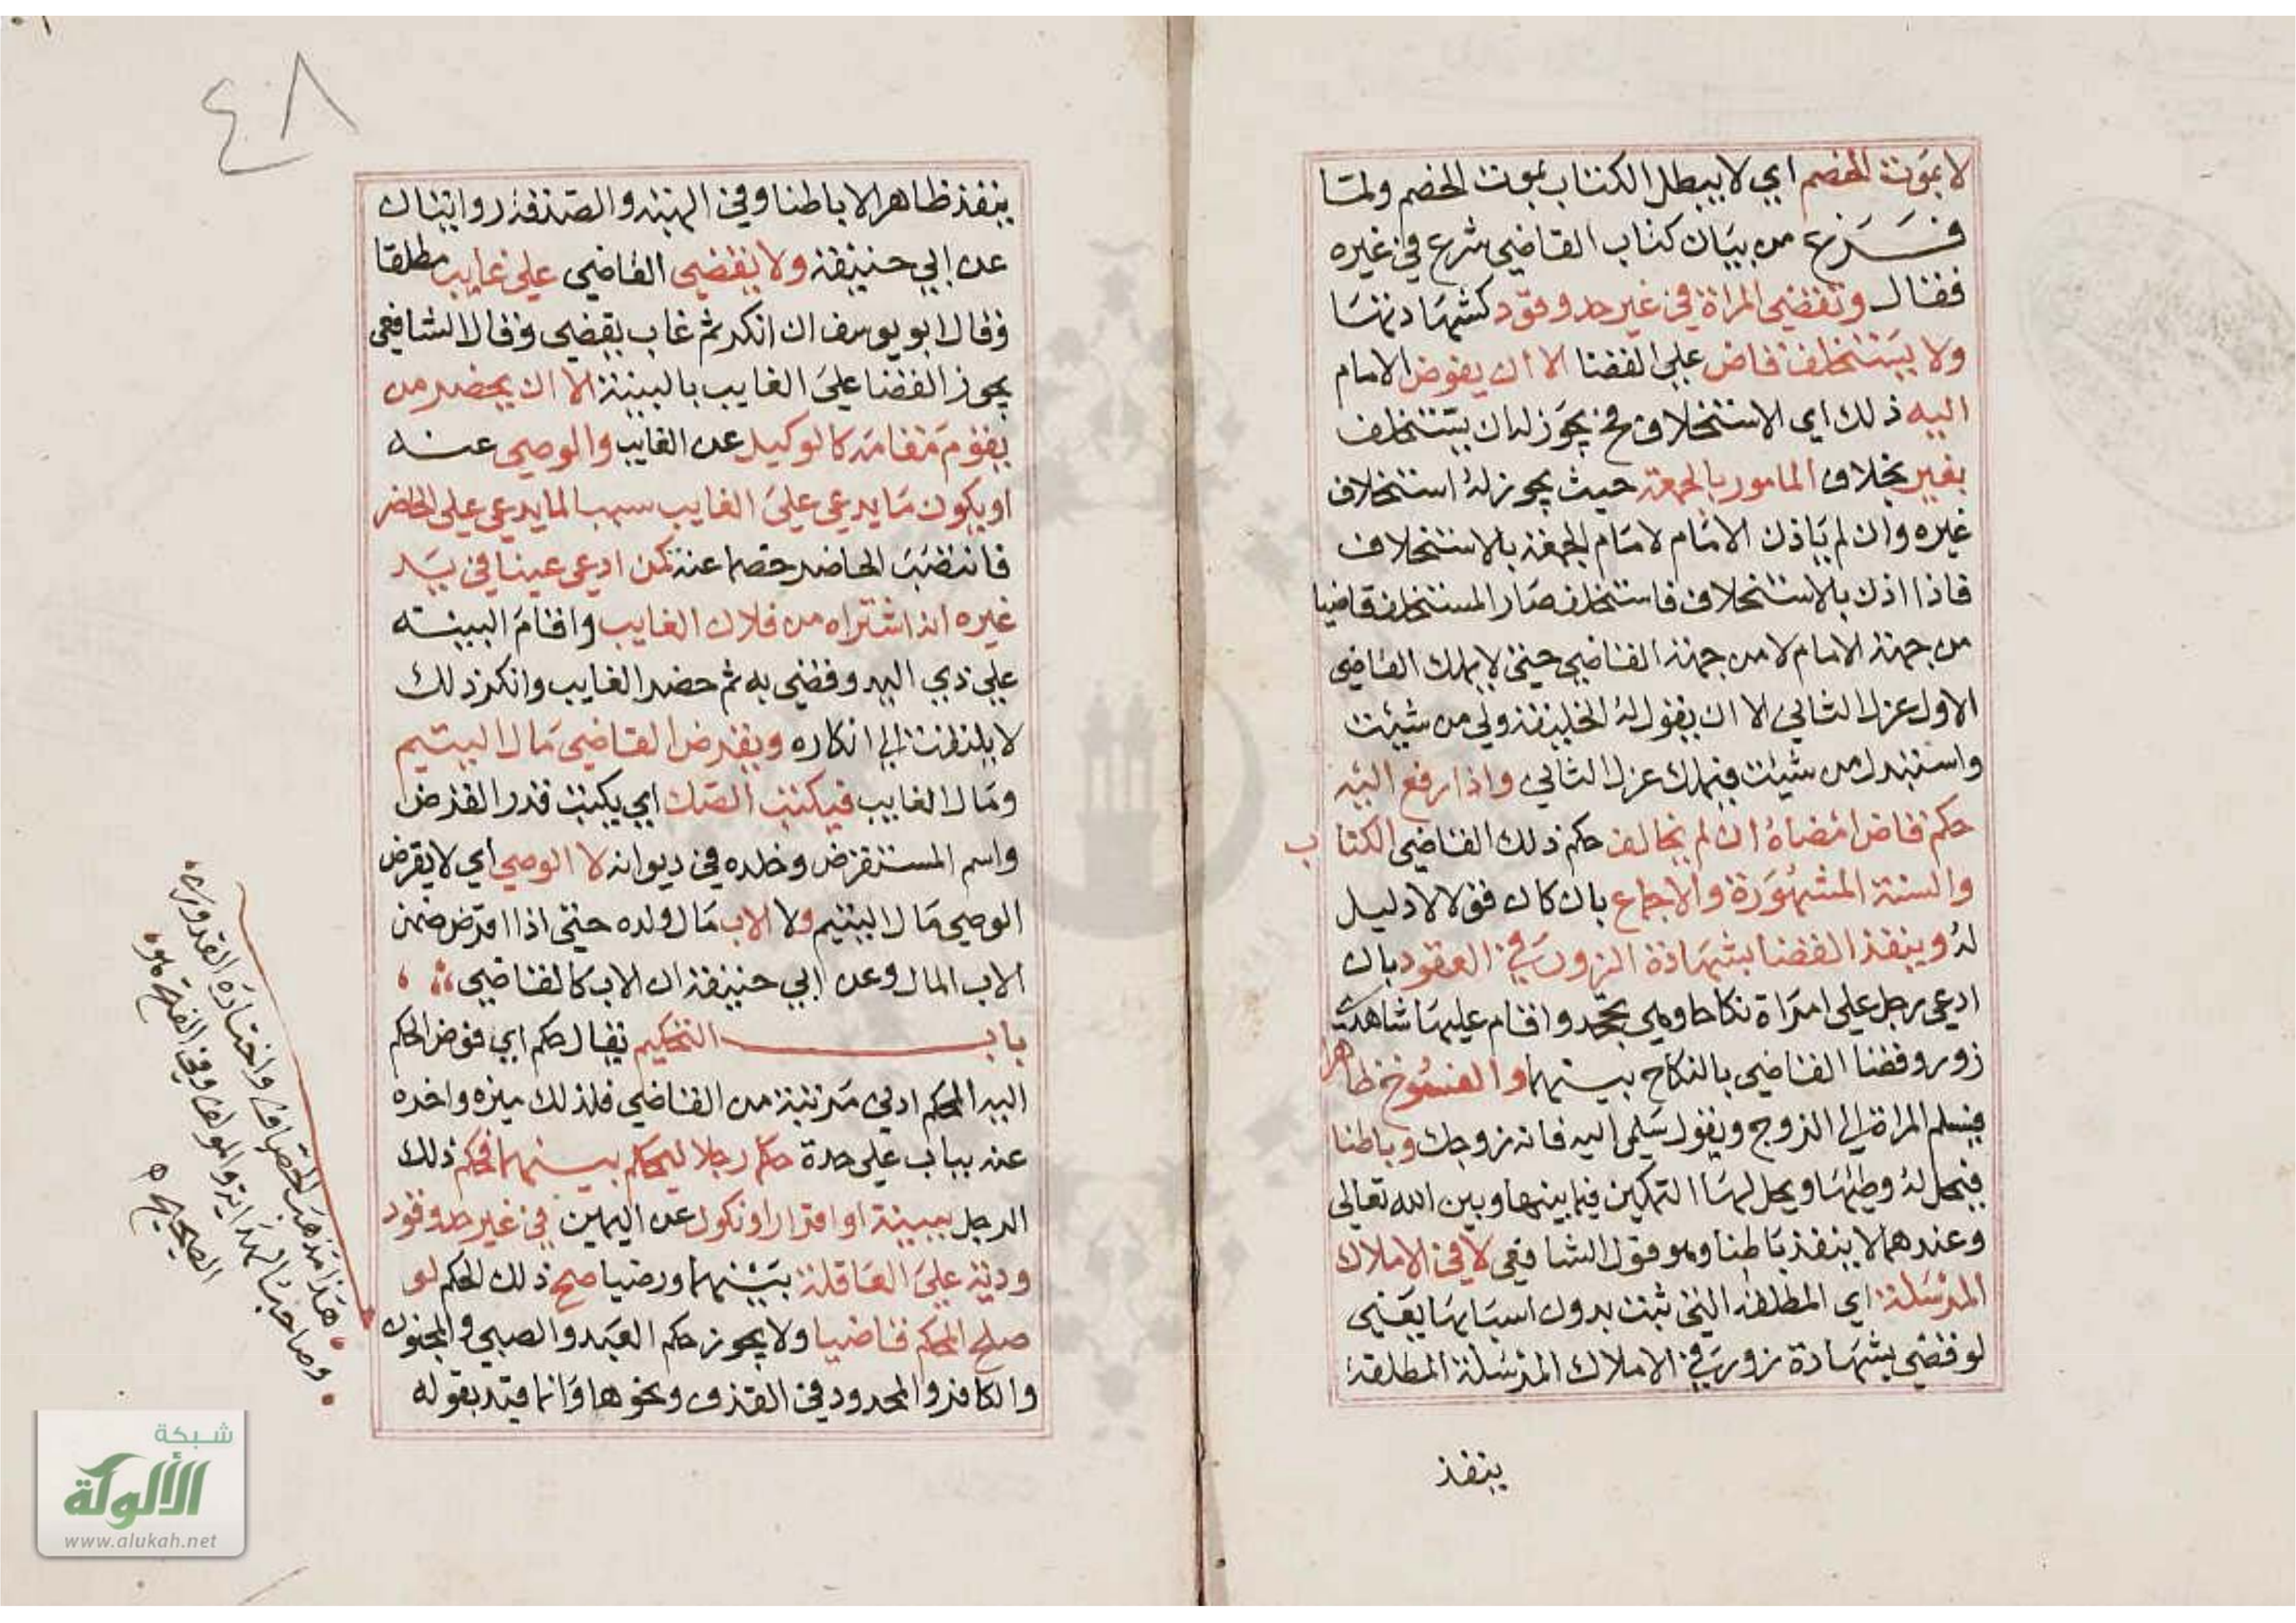 لا بموت الخصم اي لا يبطل الكتاب بموت الخصم ولمتا
فــرغ من بيان كتاب القاضي شرع في غيره
فقال وتقضي المراة في غير حد وقود كشهادتها
ولا يستخلف قاض على القضا الا ان يفوض الامام
اليه ذلك اي الاستخلاف فح يجوز له ان يستخلف
بغير بخلاف المامور بالجمعة حيث يجوز له استخلاف
غيره وان لم ياذن الامام لامام الجمعة بالاستخلاف
فاذا اذن بالاستخلاف فاستخلف صار المستخلف قاضيا
من جهة الامام لا من جهة القاضي حتى لا يملك القاضي
الاول عزل الثاني الا ان يقول له الخليفة ولي من شيئت
واستبدل من شيئت فيملك عزل الثاني واذا رفع اليه
حكم قاض امضاه ان لم يخالف حكم ذلك القاضي الكتاب
والسنة المشهورة والاجماع بان كان قولا لا دليل
له وينفذ القضا بشهادة الزور في العقود بان
ادعى رجل على امراة نكاحا وهي تجحد واقام عليها شاهدي
زور وقضا القاضي بالنكاح بينهما والفسوخ ظاهرا
فيسلم المراة الى الزوج ويقول سلمي اليه فانه زوجك وباطنا
فيحل له وطئها ويحل لها التمكين فيما بينها وبين الله تعالى
وعندهما لا ينفذ باطنا وهو قول الشافعي لا في الاملاك
المرسلة اي المطلقة التي ثبت بدون اسبابها يعني
لو قضى بشهادة زور في الاملاك المرسلة المطلقة
ينفذ
٤٨
ينفذ ظاهرا لا باطنا وفي الهبة والصدقة روايتان
عن ابي حنيفة ولا يقضي القاضي على غايب مطلقا
وقال ابو يوسف ان انكر ثم غاب يقضي وقال الشافعي
يجوز القضا على الغايب بالبينة الا ان يحضر من
يقوم مقامه كالوكيل عن الغايب والوصي عنه
او يكون ما يدعي على الغايب سببا لما يدعي على الحاضر
فانتصب الحاضر خصما عنه كمن ادعى عينا في يد
غيره انه اشتراه من فلان الغايب واقام البينة
على ذي اليد وقضي به ثم حضر الغايب وانكر ذلك
لا يلتفت الى انكاره ويقرض القاضي مال اليتيم
ومال الغايب فيكتب الصك اي يكتب قدر القرض
واسم المستقرض وخلده في ديوانه لا الوصي اي لا يقرض
الوصي مال اليتيم ولا الاب مال ولده حتى اذا اقرض ضمن
الاب المال وعن ابي حنيفة ان الاب كالقاضي
بابــــ التحكيم يقال حكم اي فوض الحكم
اليه المحكم ادنى مرتبة من القاضي فلذلك ميزه واخره
عنه بباب على حدة حكما رجلا ليحكم بينهما فحكم ذلك
الرجل ببينة او اقرار او نكول عن اليمين في غير حد وقود
ودية على العاقلة بينهما ورضيا صح ذلك الحكم لو
صلح المحكم قاضيا ولا يجوز حكم العبد والصبي والمجنون
والكافر والمحدود في القذف ونحوها وانما قيد بقوله
هذا مذهب الخصاف واختاره القدوري
وصاحب الهداية والمولف وفي الفتح هو
الصحيح
شبكة
الألوكة
www.alukah.net